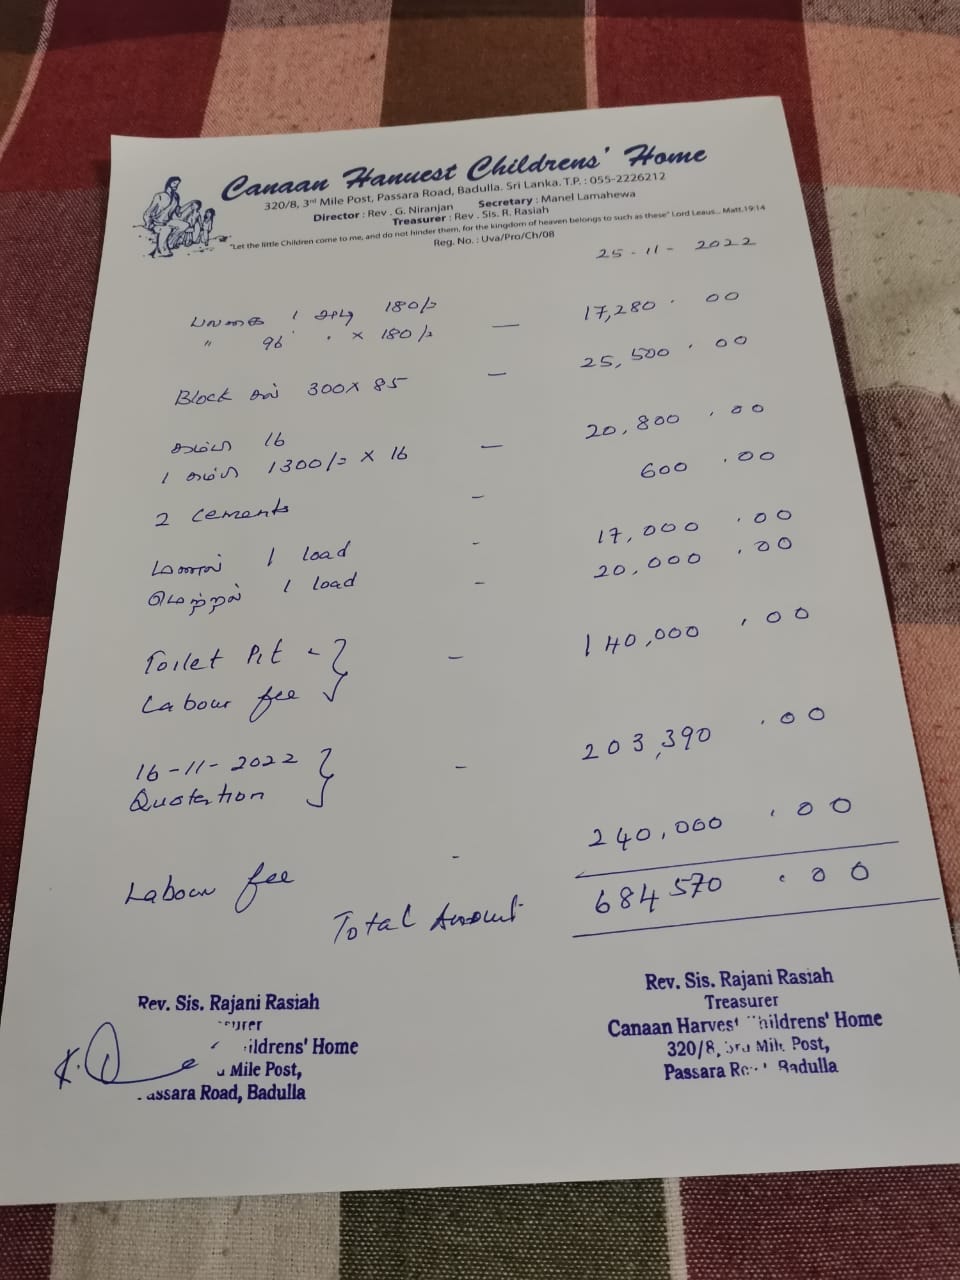 Canaan Harvest Childrens' Home
320/8, 3rd Mile Post, Passara Road, Badulla. Sri Lanka. T.P. : 055-2226212
Director : Rev. G. Niranjan Secretary : Manel Lamahewa
Treasurer : Rev. Sis. R. Rasiah
"Let the little Children come to me, and do not hinder them, for the kingdom of heaven belongs to such as these" Lord Leaus... Matt.19:14
Reg. No. : Uva/Pro/Ch/08
25-11-2022
பலகை 1 அடி 180/=
" 96 ' x 180/= — 17,280.00
Block கல் 300x85 — 25,500.00
கம்பி 16
1 கம்பி 1300/= x 16 — 20,800.00
2 cements - 600.00
மணல் 1 load - 17,000.00
மெற்றல் 1 load - 20,000.00
Toilet Pit -
Labour fee } — 140,000.00
16-11-2022
Quotertion } - 203,390.00
Labour fee - 240,000.00
Total Amount 684570.00
Rev. Sis. Rajani Rasiah
Treasurer
Canaan Harvest Childrens' Home
320/8, 3rd Mile Post,
Passara Road, Badulla
Rev. Sis. Rajani Rasiah
urer
ildrens' Home
Mile Post,
assara Road, Badulla